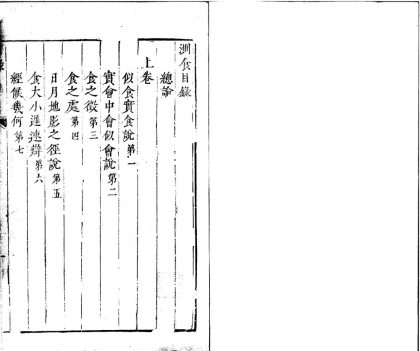 測食目錄
總論
上卷
似食實食說第一
實會中會似會說第二
食之徵第三
食之處第四
日月地影之徑說第五
食大小遲速辯第六
經候幾何第七